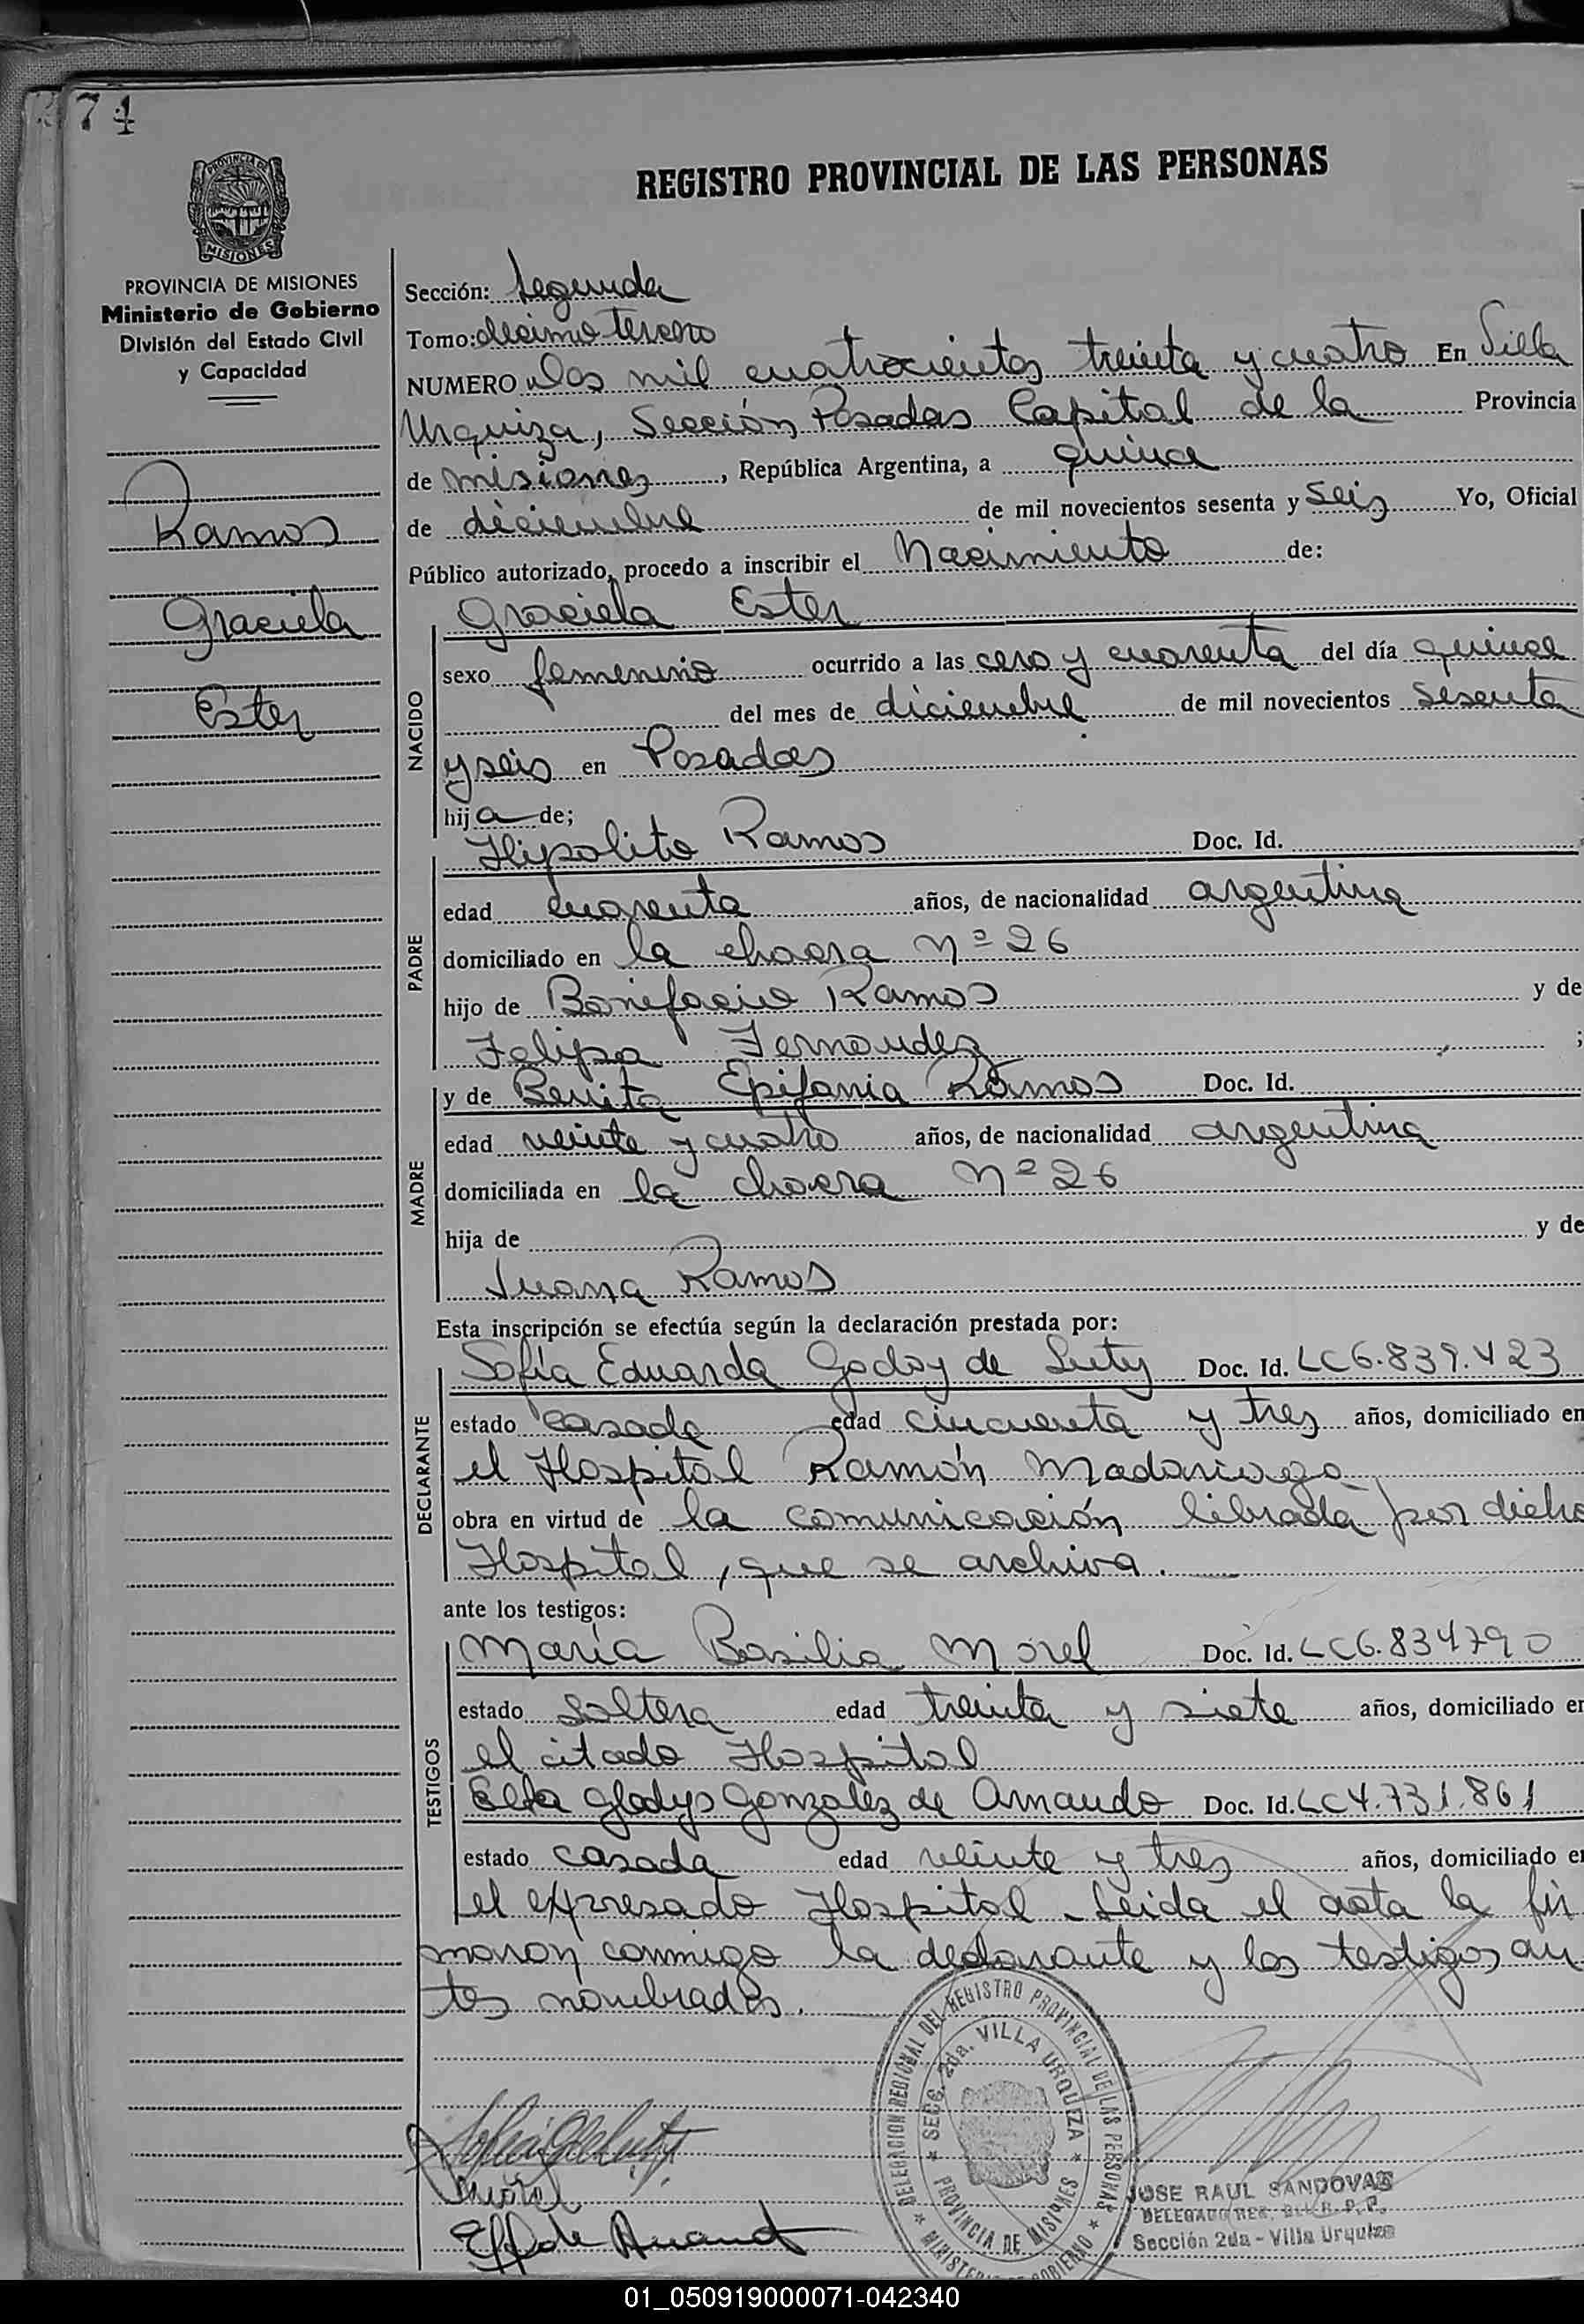 74
REGISTRO PROVINCIAL DE LAS PERSONAS
PROVINCIA DE MISIONES
Ministerio de Gobierno
División del Estado Civil
y Capacidad
Ramos
Graciela
Ester
Sección: Segunda
Tomo: decimo tercero
NUMERO dos mil cuatrocientos treinta y cuatro En Villa
Urquiza, Sección Posadas Capital de la Provincia
de misiones, República Argentina, a quince
de diciembre de mil novecientos sesenta y seis Yo, Oficial
Público autorizado, procedo a inscribir el Nacimiento de:
NACIDO
Graciela Ester
sexo femenino ocurrido a las cero y cuarenta del día quince
del mes de diciembre de mil novecientos sesenta
y seis en Posadas
hija de;
PADRE
Hipolito Ramos Doc. Id.
edad cuarenta años, de nacionalidad argentina
domiciliado en la chacra Nº 26
hijo de Bonifacio Ramos y de
Felipa Fernandez ;
MADRE
y de Benita Epifania Ramos Doc. Id.
edad veinte y cuatro años, de nacionalidad argentina
domiciliada en la chacra Nº 26
hija de y de
Juana Ramos
Esta inscripción se efectúa según la declaración prestada por:
DECLARANTE
Sofía Eduarda Godoy de Doc. Id. LC 6.839.423
estado casada edad cincuenta y tres años, domiciliado en
el Hospital Ramón Madariaga
obra en virtud de la comunicación librada por dicho
Hospital, que se archiva.
ante los testigos:
TESTIGOS
María Basilia Morel Doc. Id. LC 6.834790
estado soltera edad treinta y siete años, domiciliado en
el citado Hospital
Elfa Gladys Gonzalez de Amando Doc. Id. LC 4.731.861
estado casada edad veinte y tres años, domiciliado en
el expresado Hospital. Leida el acta la fir
maron conmigo la declarante y los testigos an
tes nombrados.
DELEGACION REGIONAL DEL REGISTRO PROVINCIAL DE LAS PERSONAS
SECC. 2da. VILLA URQUIZA
PROVINCIA DE MISIONES
MINISTERIO DE GOBIERNO
Morel
JOSE RAUL SANDOVAL
Sección 2da - Villa Urquiza
01_050919000071-042340